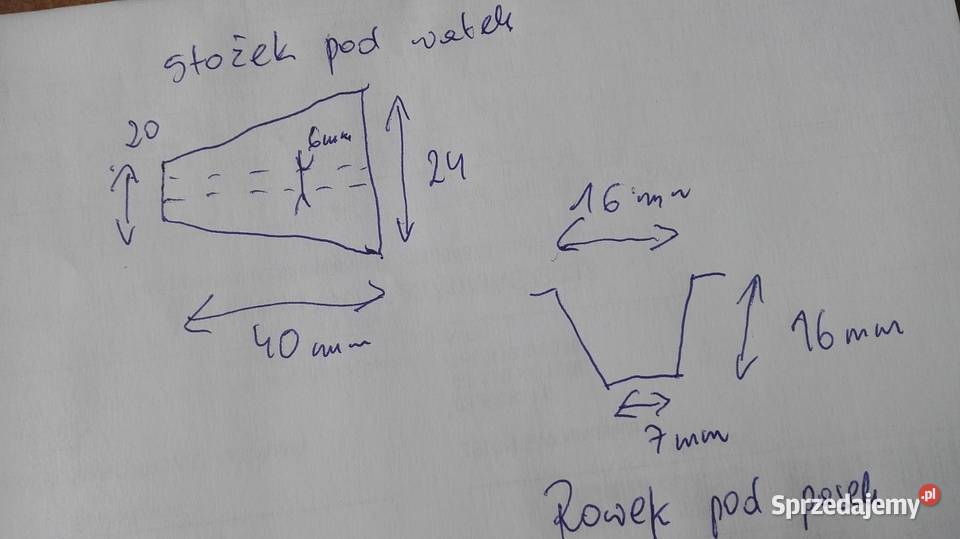 stożek pod wałek
20
6mm
24
16 mm
40 mm
16mm
7mm
Rowek pod pasek
Sprzedajemy.pl